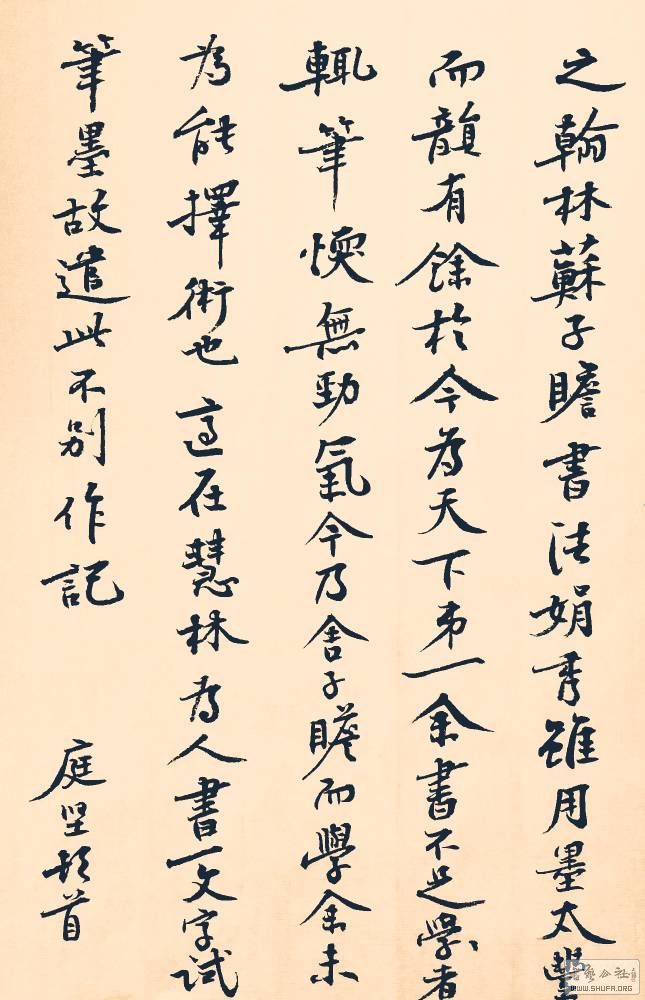 之翰林蘇子瞻書法娟秀雖用墨太豐
而韻有餘於今為天下第一余書不足學者
輒筆愞無勁氣今乃舍子瞻而學余未
為能擇術也適在慧林為人書一文字試
筆墨故遣此不別作記
庭堅頓首
WWW.SHUFA.ORG